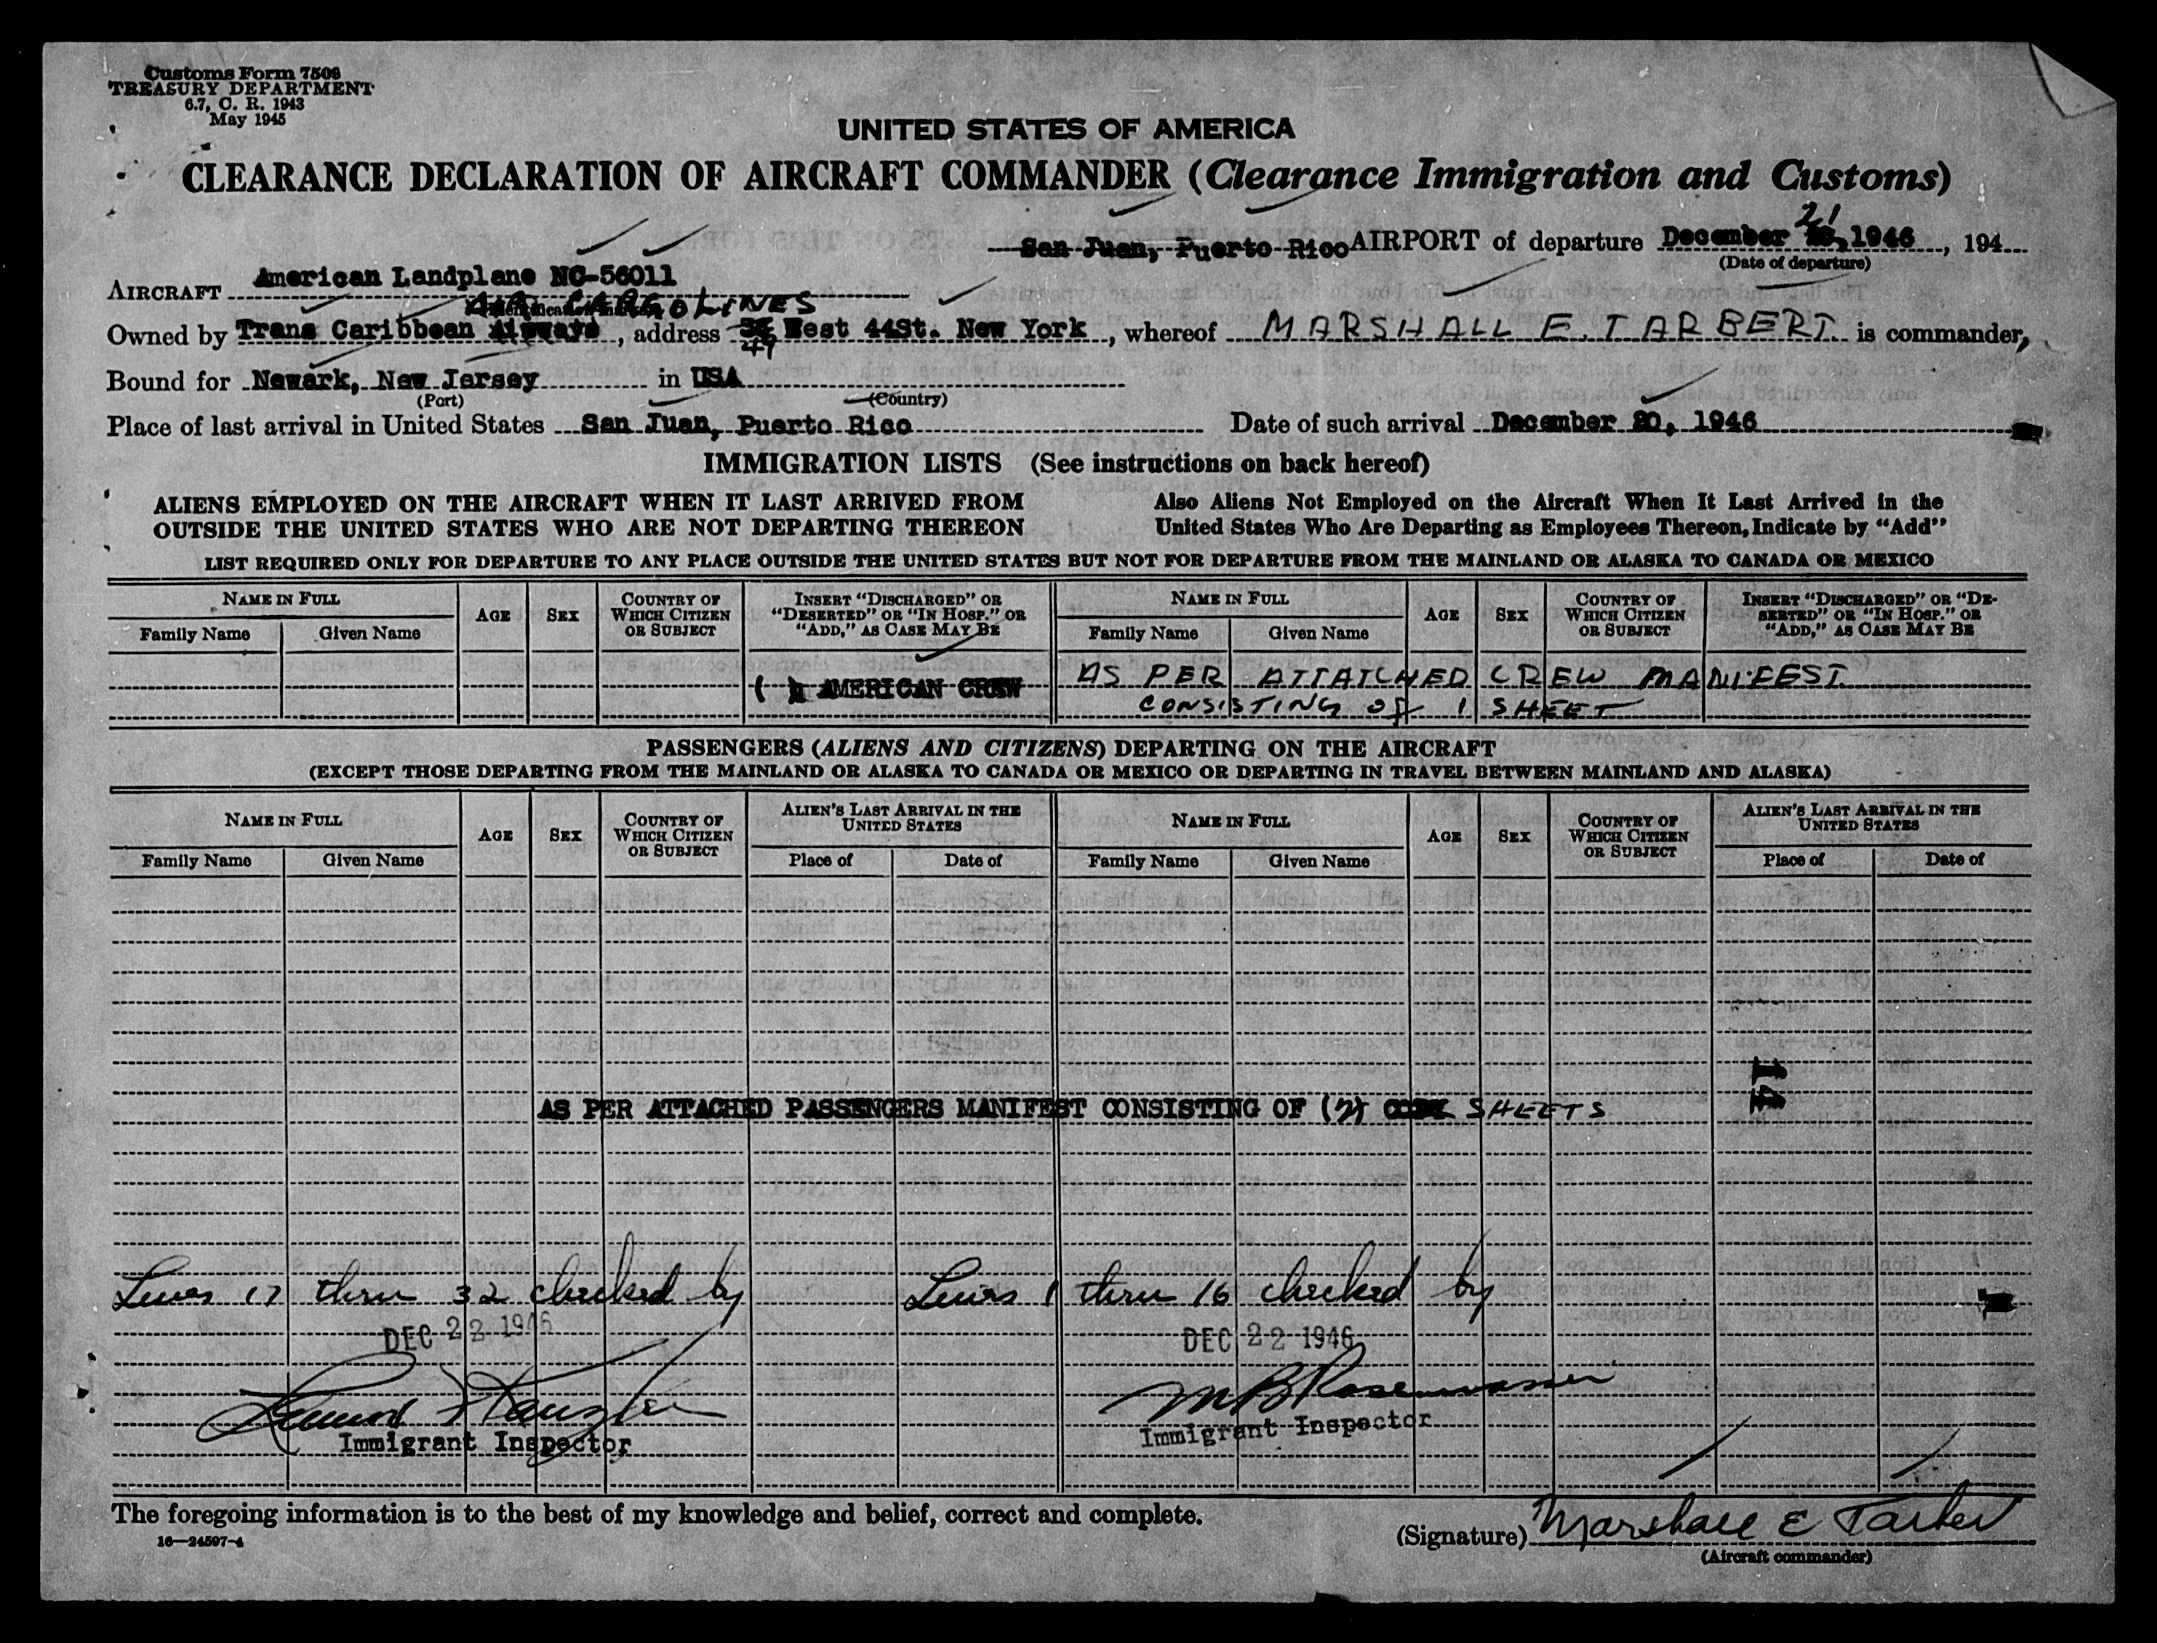 Customs Form 7509
TREASURY DEPARTMENT
6.7, C. R. 1943
May 1945
UNITED STATES OF AMERICA
CLEARANCE DECLARATION OF AIRCRAFT COMMANDER (Clearance Immigration and Customs)
21
San Juan, Puerto Rico AIRPORT of departure December 1946, 194
(Date of departure)
AIRCRAFT American Landplane NC-56011
AIR CARGO LINES
Owned by Trans Caribbean Airways, address West 44St. New York, whereof MARSHALL E. TARBERT is commander,
Bound for Newark, New Jersey in USA
(Port) (Country)
Place of last arrival in United States San Juan, Puerto Rico Date of such arrival December 20, 1946
IMMIGRATION LISTS (See instructions on back hereof)
ALIENS EMPLOYED ON THE AIRCRAFT WHEN IT LAST ARRIVED FROM Also Aliens Not Employed on the Aircraft When It Last Arrived in the
OUTSIDE THE UNITED STATES WHO ARE NOT DEPARTING THEREON United States Who Are Departing as Employees Thereon, Indicate by "Add"
LIST REQUIRED ONLY FOR DEPARTURE TO ANY PLACE OUTSIDE THE UNITED STATES BUT NOT FOR DEPARTURE FROM THE MAINLAND OR ALASKA TO CANADA OR MEXICO
NAME IN FULL AGE SEX COUNTRY OF WHICH CITIZEN OR SUBJECT INSERT "DISCHARGED" OR "DESERTED" OR "IN HOSP." OR "ADD," AS CASE MAY BE NAME IN FULL AGE SEX COUNTRY OF WHICH CITIZEN OR SUBJECT INSERT "DISCHARGED" OR "DE-SERTED" OR "IN HOSP." OR "ADD," AS CASE MAY BE
Family Name Given Name Family Name Given Name
( ) AMERICAN CREW AS PER ATTATCHED CREW MANIFEST
CONSISTING OF 1 SHEET
PASSENGERS (ALIENS AND CITIZENS) DEPARTING ON THE AIRCRAFT
(EXCEPT THOSE DEPARTING FROM THE MAINLAND OR ALASKA TO CANADA OR MEXICO OR DEPARTING IN TRAVEL BETWEEN MAINLAND AND ALASKA)
NAME IN FULL AGE SEX COUNTRY OF WHICH CITIZEN OR SUBJECT ALIEN'S LAST ARRIVAL IN THE UNITED STATES NAME IN FULL AGE SEX COUNTRY OF WHICH CITIZEN OR SUBJECT ALIEN'S LAST ARRIVAL IN THE UNITED STATES
Family Name Given Name Place of Date of Family Name Given Name Place of Date of
AS PER ATTACHED PASSENGERS MANIFEST CONSISTING OF (2) SHEETS
Lines 17 thru 32 checked by Lines 1 thru 16 checked by
DEC 22 1946 DEC 22 1946
M B Rosenwasser
Immigrant Inspector Immigrant Inspector
The foregoing information is to the best of my knowledge and belief, correct and complete.
16—24597-4
(Signature) Marshall E Tarbert
(Aircraft commander)